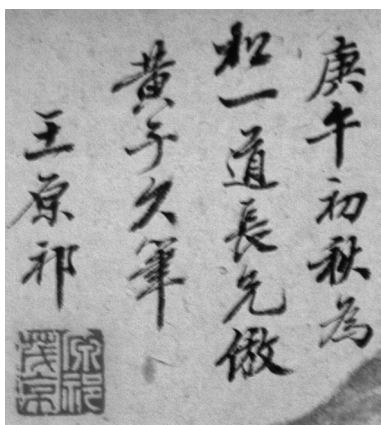 庚午初秋為
一道長兄倣
黃子久筆
王原祁
原祁
茂京